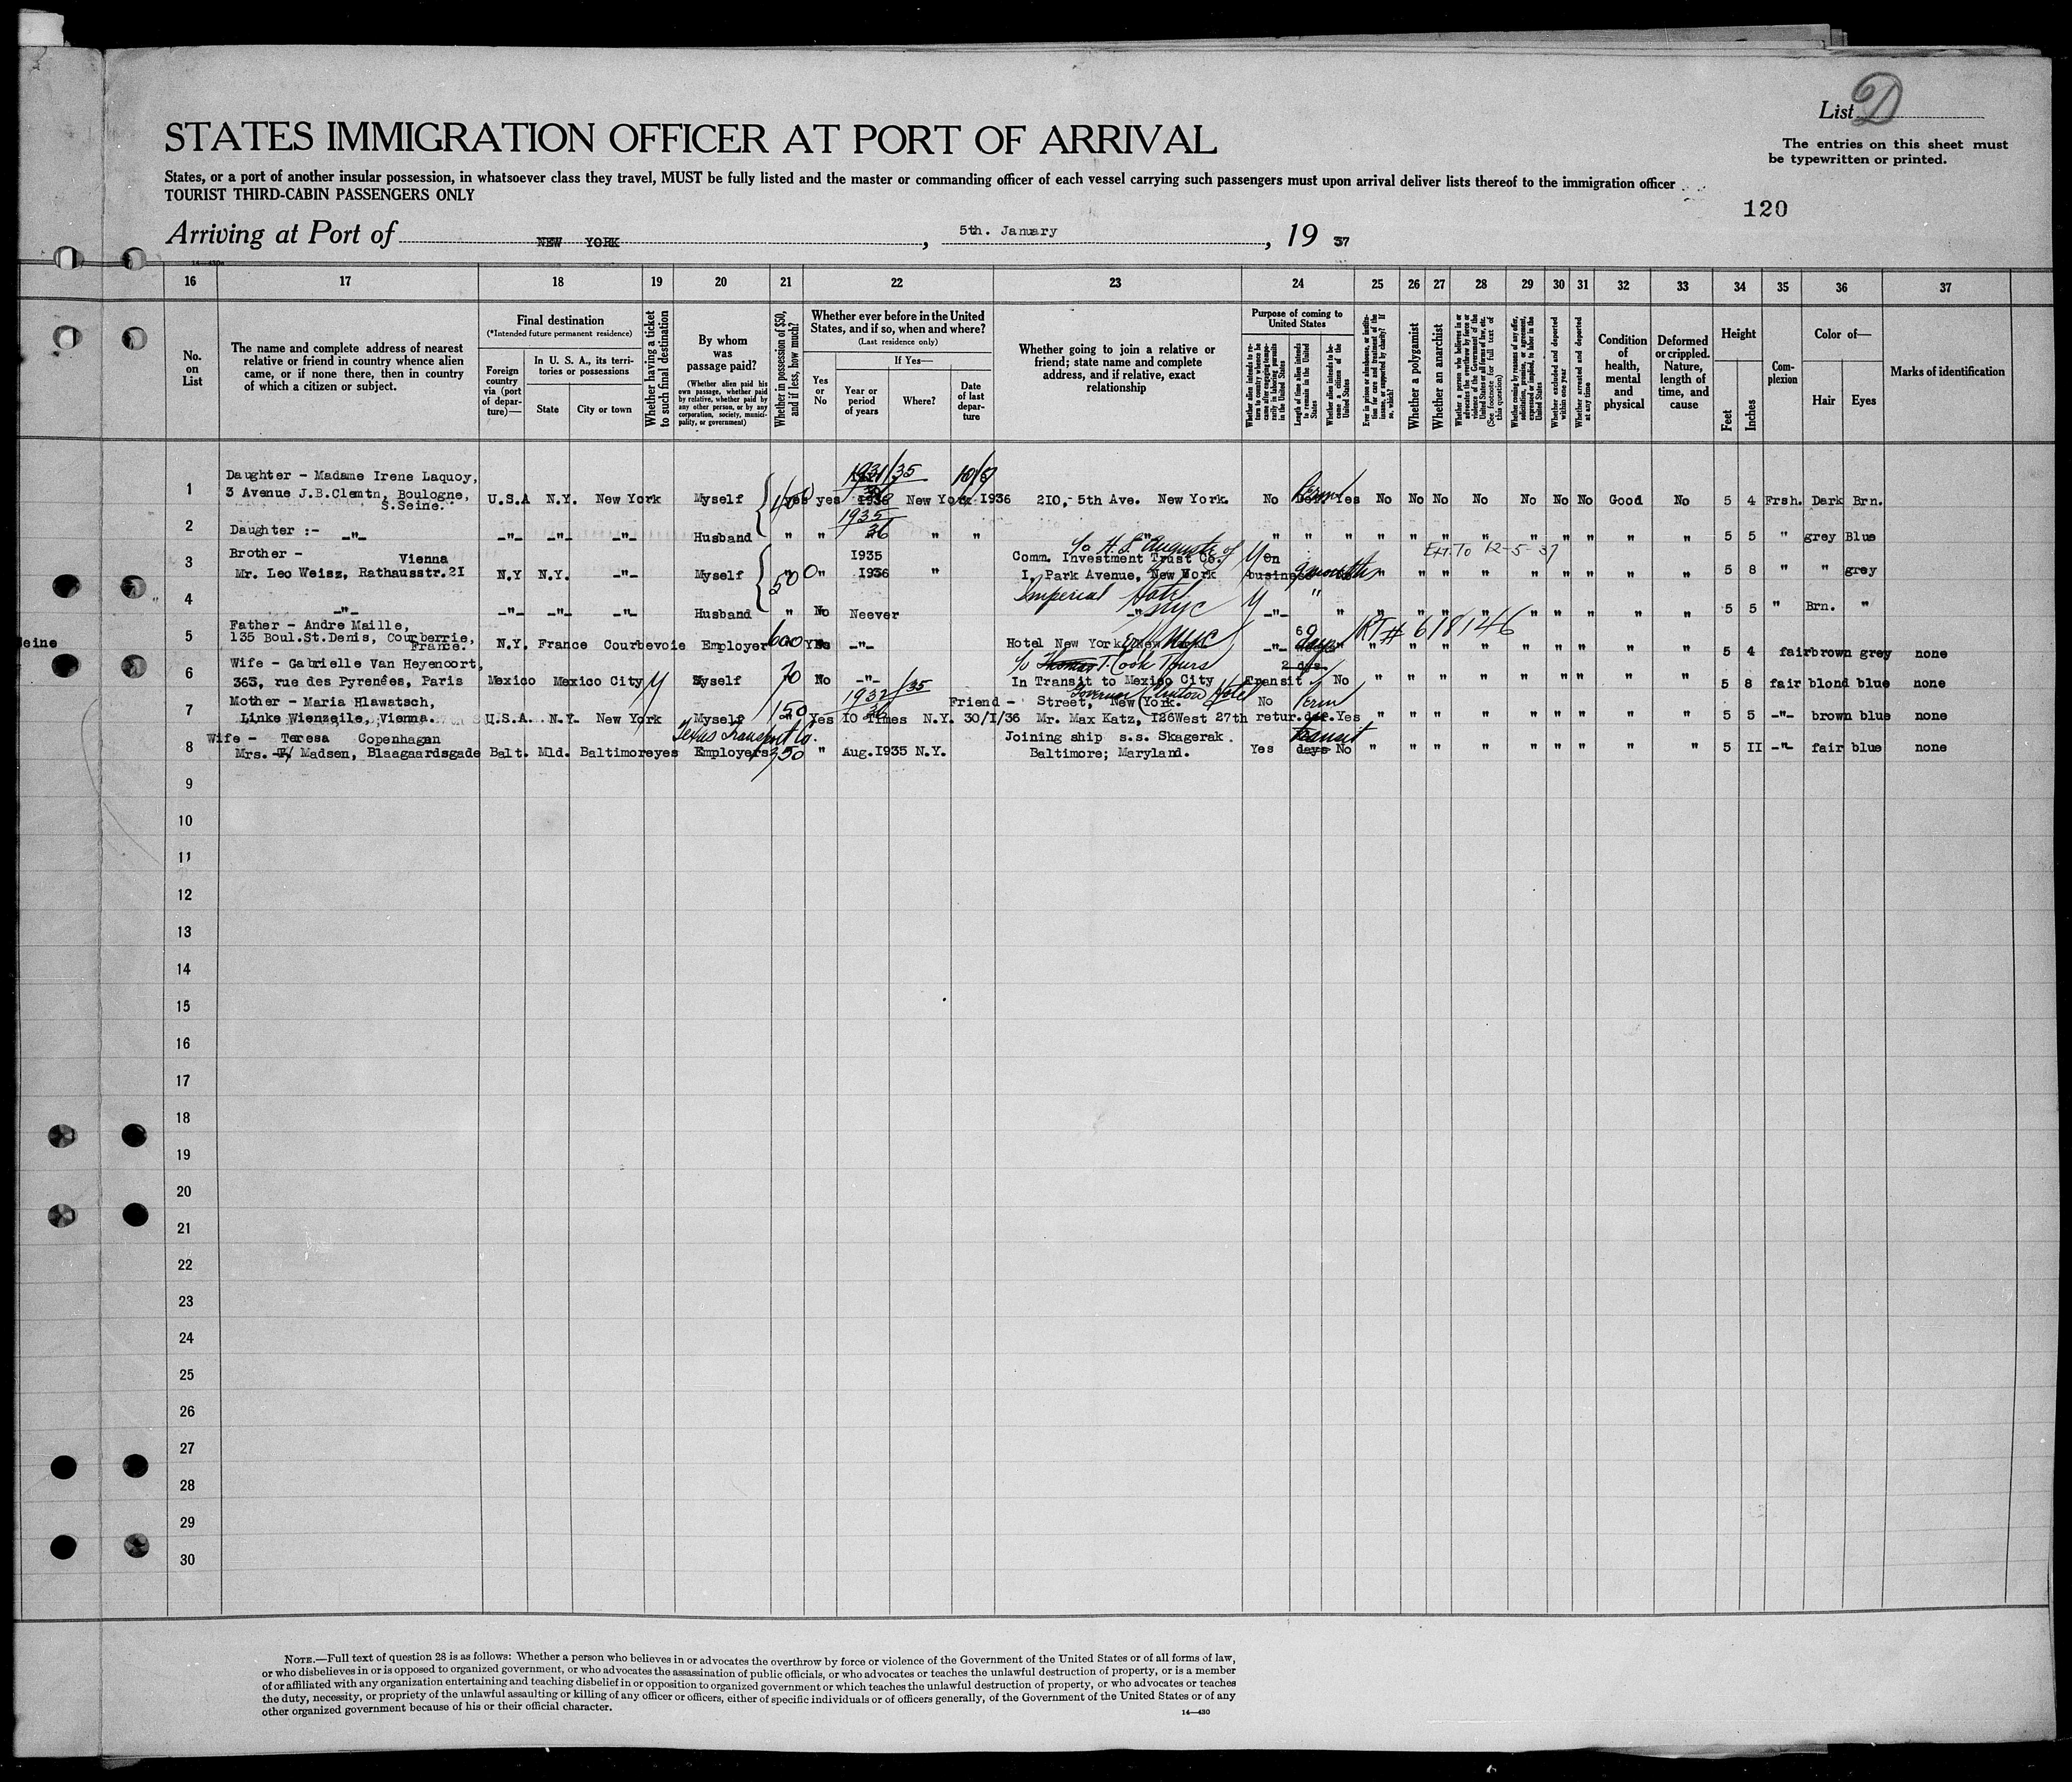 List D
STATES IMMIGRATION OFFICER AT PORT OF ARRIVAL
The entries on this sheet must
be typewritten or printed.
States, or a port of another insular possession, in whatsoever class they travel, MUST be fully listed and the master or commanding officer of each vessel carrying such passengers must upon arrival deliver lists thereof to the immigration officer
TOURIST THIRD-CABIN PASSENGERS ONLY
120
Arriving at Port of NEW YORK, 5th. January, 19 37
16 17 18 19 20 21 22 23 24 25 26 27 28 29 30 31 32 33 34 35 36 37
No. on List
The name and complete address of nearest relative or friend in country whence alien came, or if none there, then in country of which a citizen or subject.
Final destination
(*Intended future permanent residence)
Foreign country via (port of departure)—
In U. S. A., its territories or possessions
State
City or town
Whether having a ticket to such final destination
By whom was passage paid?
(Whether alien paid his own passage, whether paid by relative, whether paid by any other person, or by any corporation, society, municipality, or government)
Whether in possession of $50, and if less, how much?
Whether ever before in the United States, and if so, when and where?
(Last residence only)
Yes or No
If Yes—
Year or period of years
Where?
Date of last departure
Whether going to join a relative or friend; state name and complete address, and if relative, exact relationship
Purpose of coming to United States
Whether alien intends to return to country whence he came after engaging temporarily in laboring pursuits in the United States
Length of time alien intends to remain in the United States
Whether alien intends to become a citizen of the United States
Ever in prison or almshouse, or institution for care and treatment of the insane, or supported by charity? If so, which?
Whether a polygamist
Whether an anarchist
Whether a person who believes in or advocates the overthrow by force or violence of the Government of the United States or all forms of law, etc. (See footnote for full text of this question)
Whether coming by reason of any offer, solicitation, promise, or agreement, expressed or implied, to labor in the United States
Whether excluded and deported within one year
Whether arrested and deported at any time
Condition of health, mental and physical
Deformed or crippled. Nature, length of time, and cause
Height
Feet
Inches
Complexion
Color of—
Hair
Eyes
Marks of identification
1931/35 10/6
Daughter - Madame Irene Laquoy,
1 3 Avenue J.B.Clemtn, Boulogne, U.S.A N.Y. New York Myself 450 yes yes 1936 New York 1936 210,- 5th Ave. New York. No Perm Yes No No No No No No No Good No 5 4 Frsh. Dark Brn.
S.Seine.
1935
2 Daughter :- -"- -"- -"- -"- Husband " " 36 " " " " " " " " " " " " " " " 5 5 " grey Blue
Brother - Vienna 1935 c/o H. S. Auguste of Comm. Investment Trust Co. Y On Ext. To 12-5-37
3 Mr. Leo Weisz, Rathausstr.21 N.Y N.Y. -"- Myself 500 " 1936 " I, Park Avenue, New York business 9 months " " " " " " " " " 5 8 " " grey
Imperial Hotel Y "
4 -"- -"- -"- -"- Husband " No Neever -"- NYC -"- " " " " " " " " " " 5 5 " Brn. "
Father - Andre Maille,
5 135 Boul.St.Denis, Courberrie, N.Y. France Courbevoie Employer 600 Yes -"- Hotel New York, New York NYC -"- 60 days " RT# 618146 " " " " " " " " " 5 4 fair brown grey none
France.
Seine
Wife - Gabrielle Van Heyenoort, c/o Thomas T. Cook Tours 2 dys
6 363, rue des Pyrenées, Paris Mexico Mexico City Y Myself 70 No -"- In Transit to Mexico City Transit No " " " " " " " " " 5 8 fair blond blue none
Mother - Maria Hlawatsch, 1932/35 Friend - Street, New York. Governor Clinton Hotel No Perm
7 Linke Wienzeile, Vienna. U.S.A. N.Y. New York Myself 150 Yes 10 Times N.Y. 30/I/36 Mr. Max Katz, I26West 27th retur. def. Yes " " " " " " " " " 5 5 -"- brown blue none
Wife - Teresa Copenhagen Texas Transport Co. Joining ship s.s. Skagerak. Transit
8 Mrs. Madsen, Blaagaardsgade Balt. Mld. Baltimore yes Employers 350 " Aug.I935 N.Y. Baltimore; Maryland. Yes days No " " " " " " " " " 5 II -"- fair blue none
9
10
11
12
13
14
15
16
17
18
19
20
21
22
23
24
25
26
27
28
29
30
NOTE.—Full text of question 28 is as follows: Whether a person who believes in or advocates the overthrow by force or violence of the Government of the United States or of all forms of law,
or who disbelieves in or is opposed to organized government, or who advocates the assassination of public officials, or who advocates or teaches the unlawful destruction of property, or is a member
of or affiliated with any organization entertaining and teaching disbelief in or opposition to organized government or which teaches the unlawful destruction of property, or who advocates or teaches
the duty, necessity, or propriety of the unlawful assaulting or killing of any officer or officers, either of specific individuals or of officers generally, of the Government of the United States or of any
other organized government because of his or their official character.
14—430